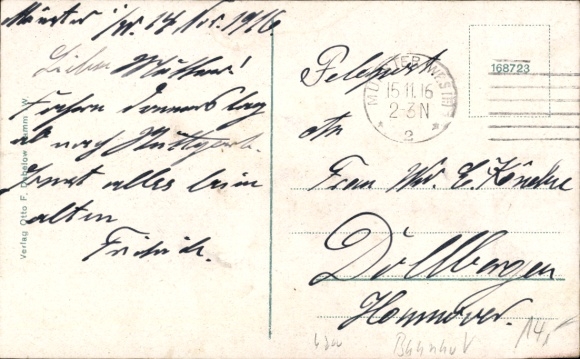 Münster i/W. 14. Nov. 1916.
Liebe Mutter!
Fahren Donnerstag
ab nach Stuttgart.
Sonst alles beim
alten
Friedrich.
Verlag Otto F. Dabelow, Hamm i. W.
Feldpost
MÜNSTER (WESTF.)
15.11.16
2-3N
* 2 *
168723
An
Frau Ww. E.
Dollbergen
Hannover.
Bahnhof
14.